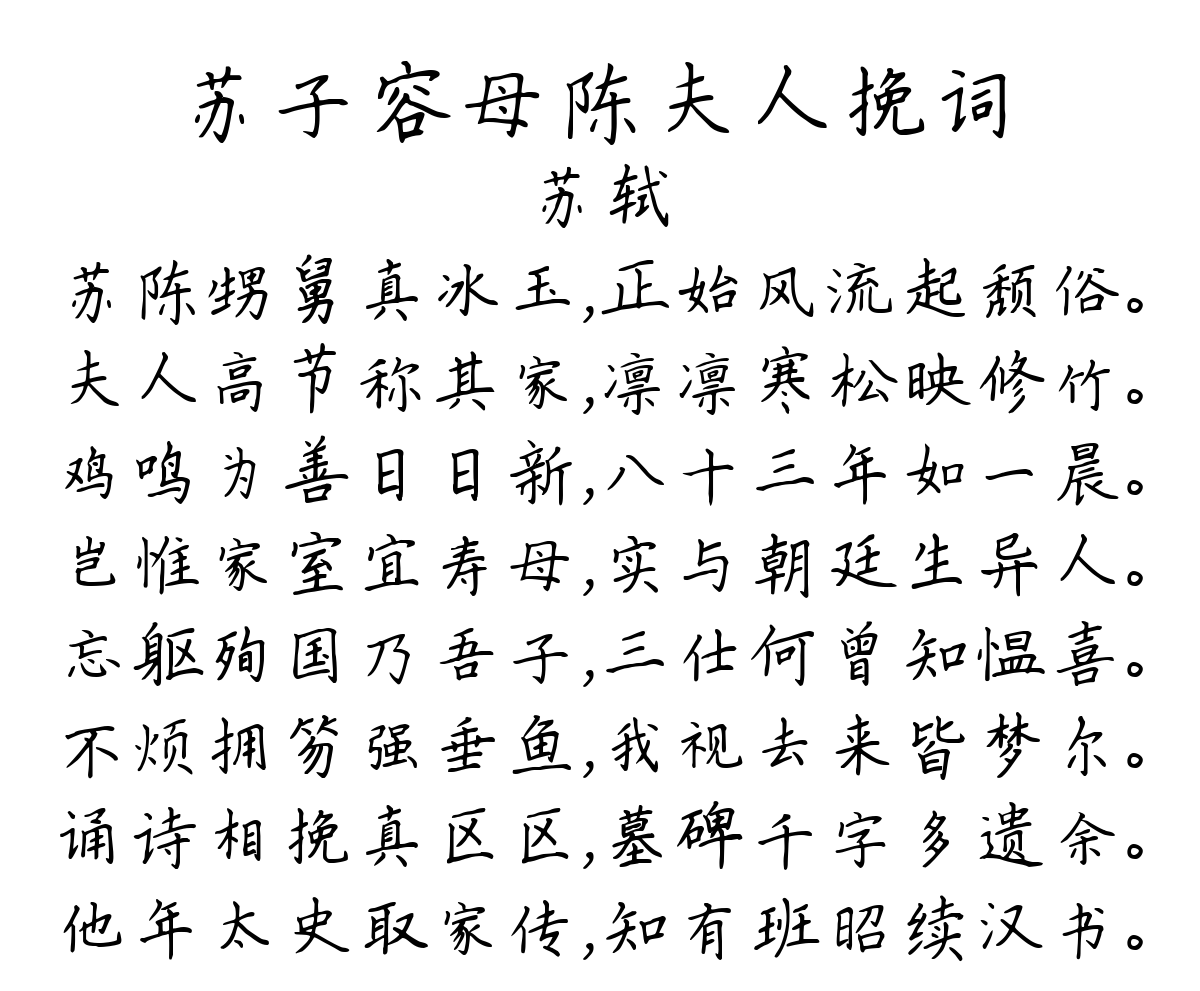 苏子容母陈夫人挽词
苏轼
苏陈甥舅真冰玉,正始风流起颓俗。
夫人高节称其家,凛凛寒松映修竹。
鸡鸣为善日日新,八十三年如一晨。
岂惟家室宜寿母,实与朝廷生异人。
忘躯殉国乃吾子,三仕何曾知愠喜。
不烦拥笏强垂鱼,我视去来皆梦尔。
诵诗相挽真区区,墓碑千字多遗余。
他年太史取家传,知有班昭续汉书。